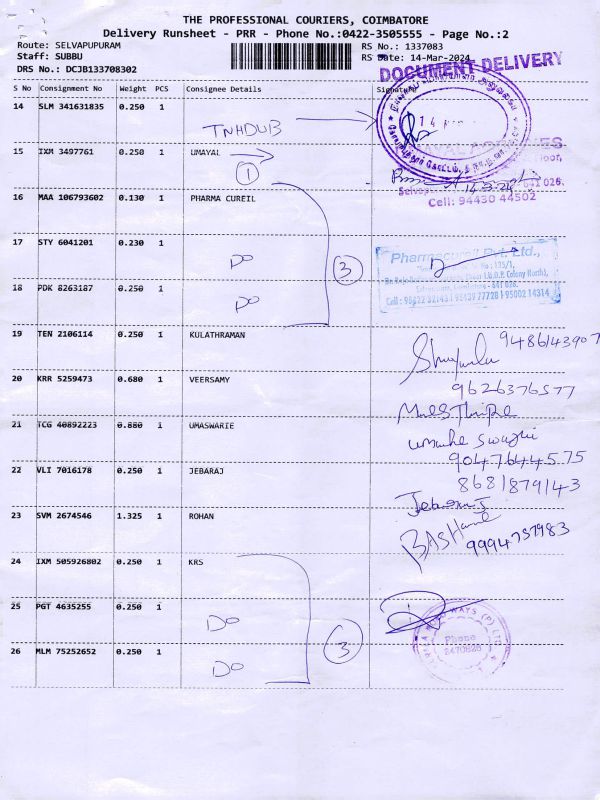 THE PROFESSIONAL COURIERS, COIMBATORE
Delivery Runsheet - PRR - Phone No.:0422-3505555 - Page No.:2
Route: SELVAPUPURAM
RS No.: 1337083
Staff: SUBBU
RS Date: 14-Mar-2024
DRS No.: DCJB133708302
DOCUMENT DELIVERY
S No Consignment No Weight PCS Consignee Details Signature
14 SLM 341631835 0.250 1
TNHDUB
15 IXM 3497761 0.250 1 UMAYAL
1
Cell: 94430 44502
16 MAA 106793602 0.130 1 PHARMA CUREIL
17 STY 6041201 0.230 1
DO
3
Pharmacureil Pvt. Ltd.,
18 PDK 8263187 0.250 1
DO
19 TEN 2106114 0.250 1 KULATHRAMAN
9486143907
20 KRR 5259473 0.680 1 VEERSAMY
9626376577
21 TCG 40892223 0.880 1 UMASWARIE
9047644575
22 VLI 7016178 0.250 1 JEBARAJ
8681879143
23 SVM 2674546 1.325 1 ROHAN
9994757983
24 IXM 505926802 0.250 1 KRS
25 PGT 4635255 0.250 1
DO
3
Phone
2470626
26 MLM 75252652 0.250 1
DO